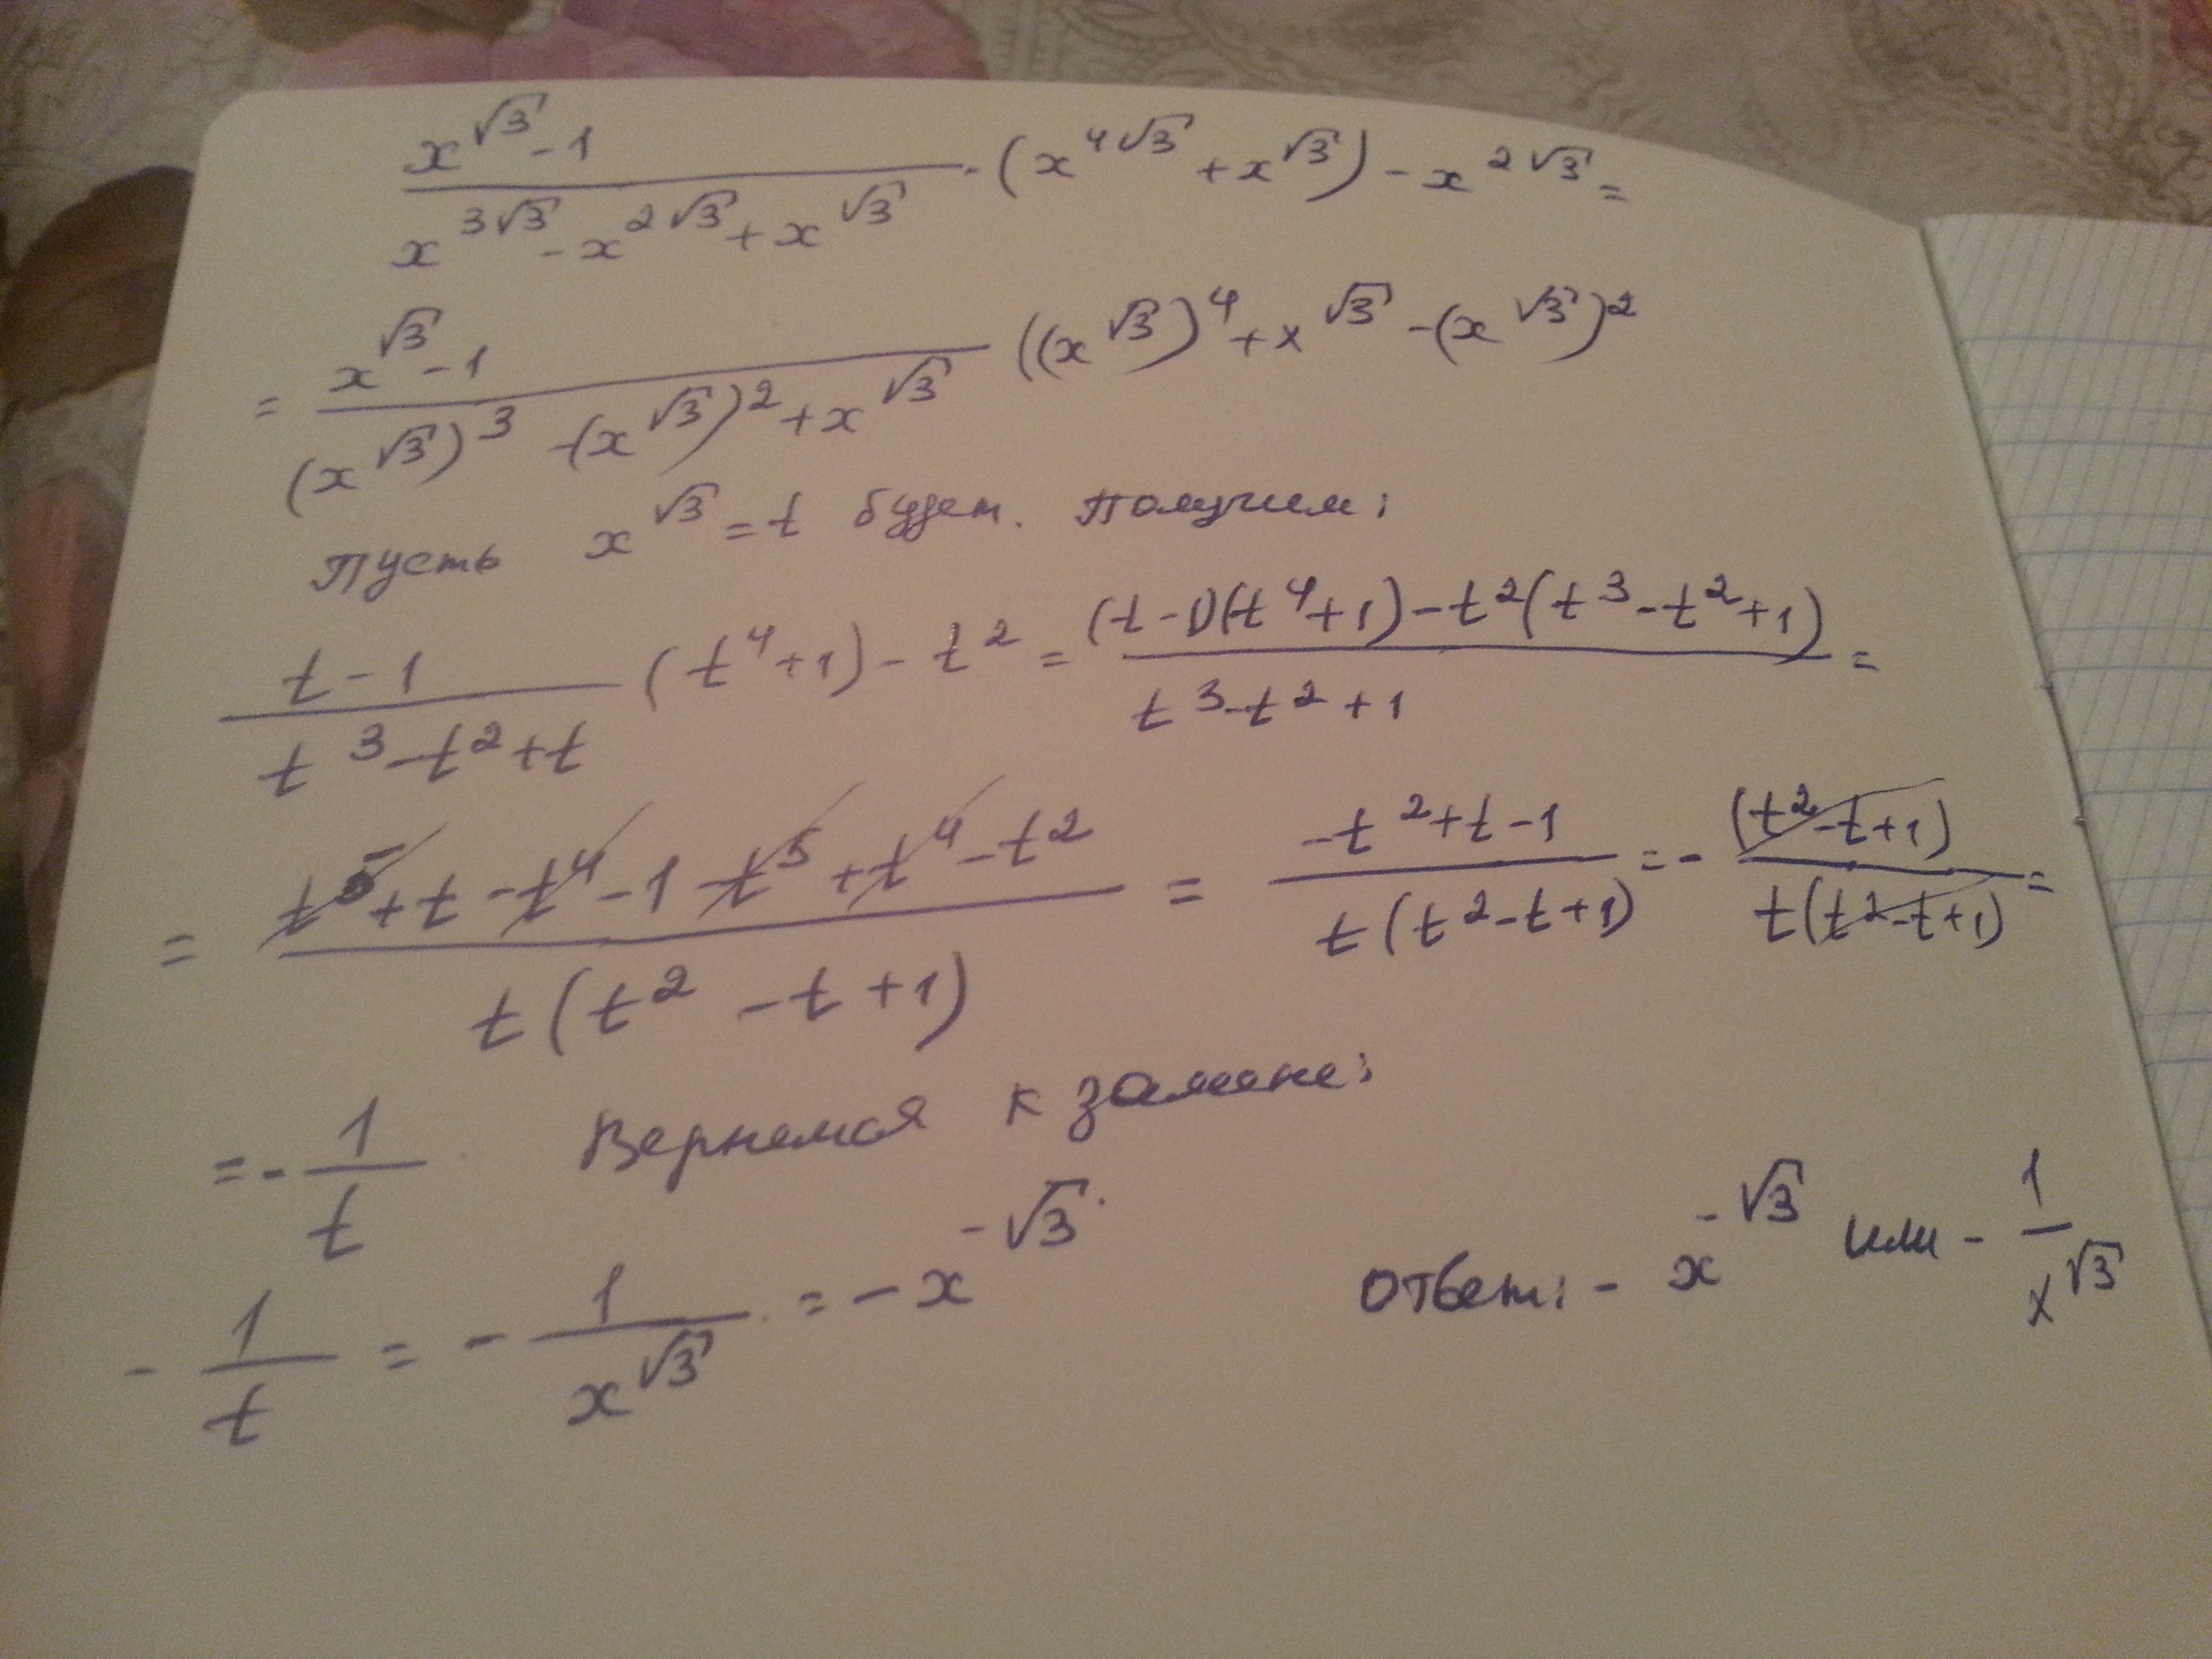 (x^√3 - 1)/(x^(3√3) - x^(2√3) + x^√3) · (x^(4√3) + x^√3) - x^(2√3) =
= (x^√3 - 1)/((x^√3)^3 - (x^√3)^2 + x^√3) ((x^√3)^4 + x^√3 - (x^√3)^2
Пусть x^√3 = t будет. Получим:
(t - 1)/(t^3 - t^2 + t) (t^4 + 1) - t^2 = ((t - 1)(t^4 + 1) - t^2(t^3 - t^2 + 1))/(t^3 - t^2 + 1) =
= (t^5 + t - t^4 - 1 - t^5 + t^4 - t^2)/(t(t^2 - t + 1)) = (-t^2 + t - 1)/(t(t^2 - t + 1)) = - (t^2 - t + 1)/(t(t^2 - t + 1)) =
= - 1/t Вернемся к замене:
- 1/t = - 1/x^√3 = - x^(-√3)
Ответ: - x^(-√3) или - 1/x^√3